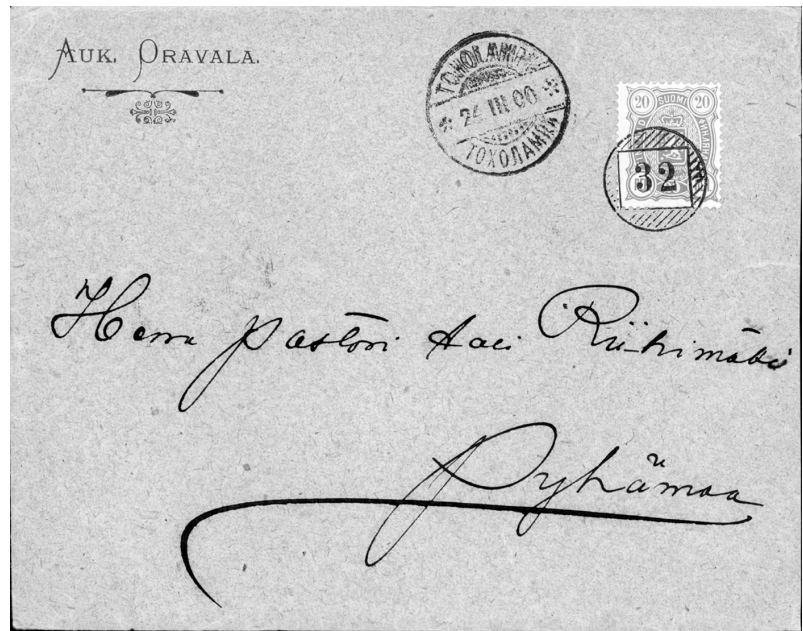 AUK. ORAVALA.
TOHOLAMPI
24 III 00
ТОХОЛАМПИ
20 SUOMI 20
32
Herra pastori Aaci Riihimäki
Pyhämaa